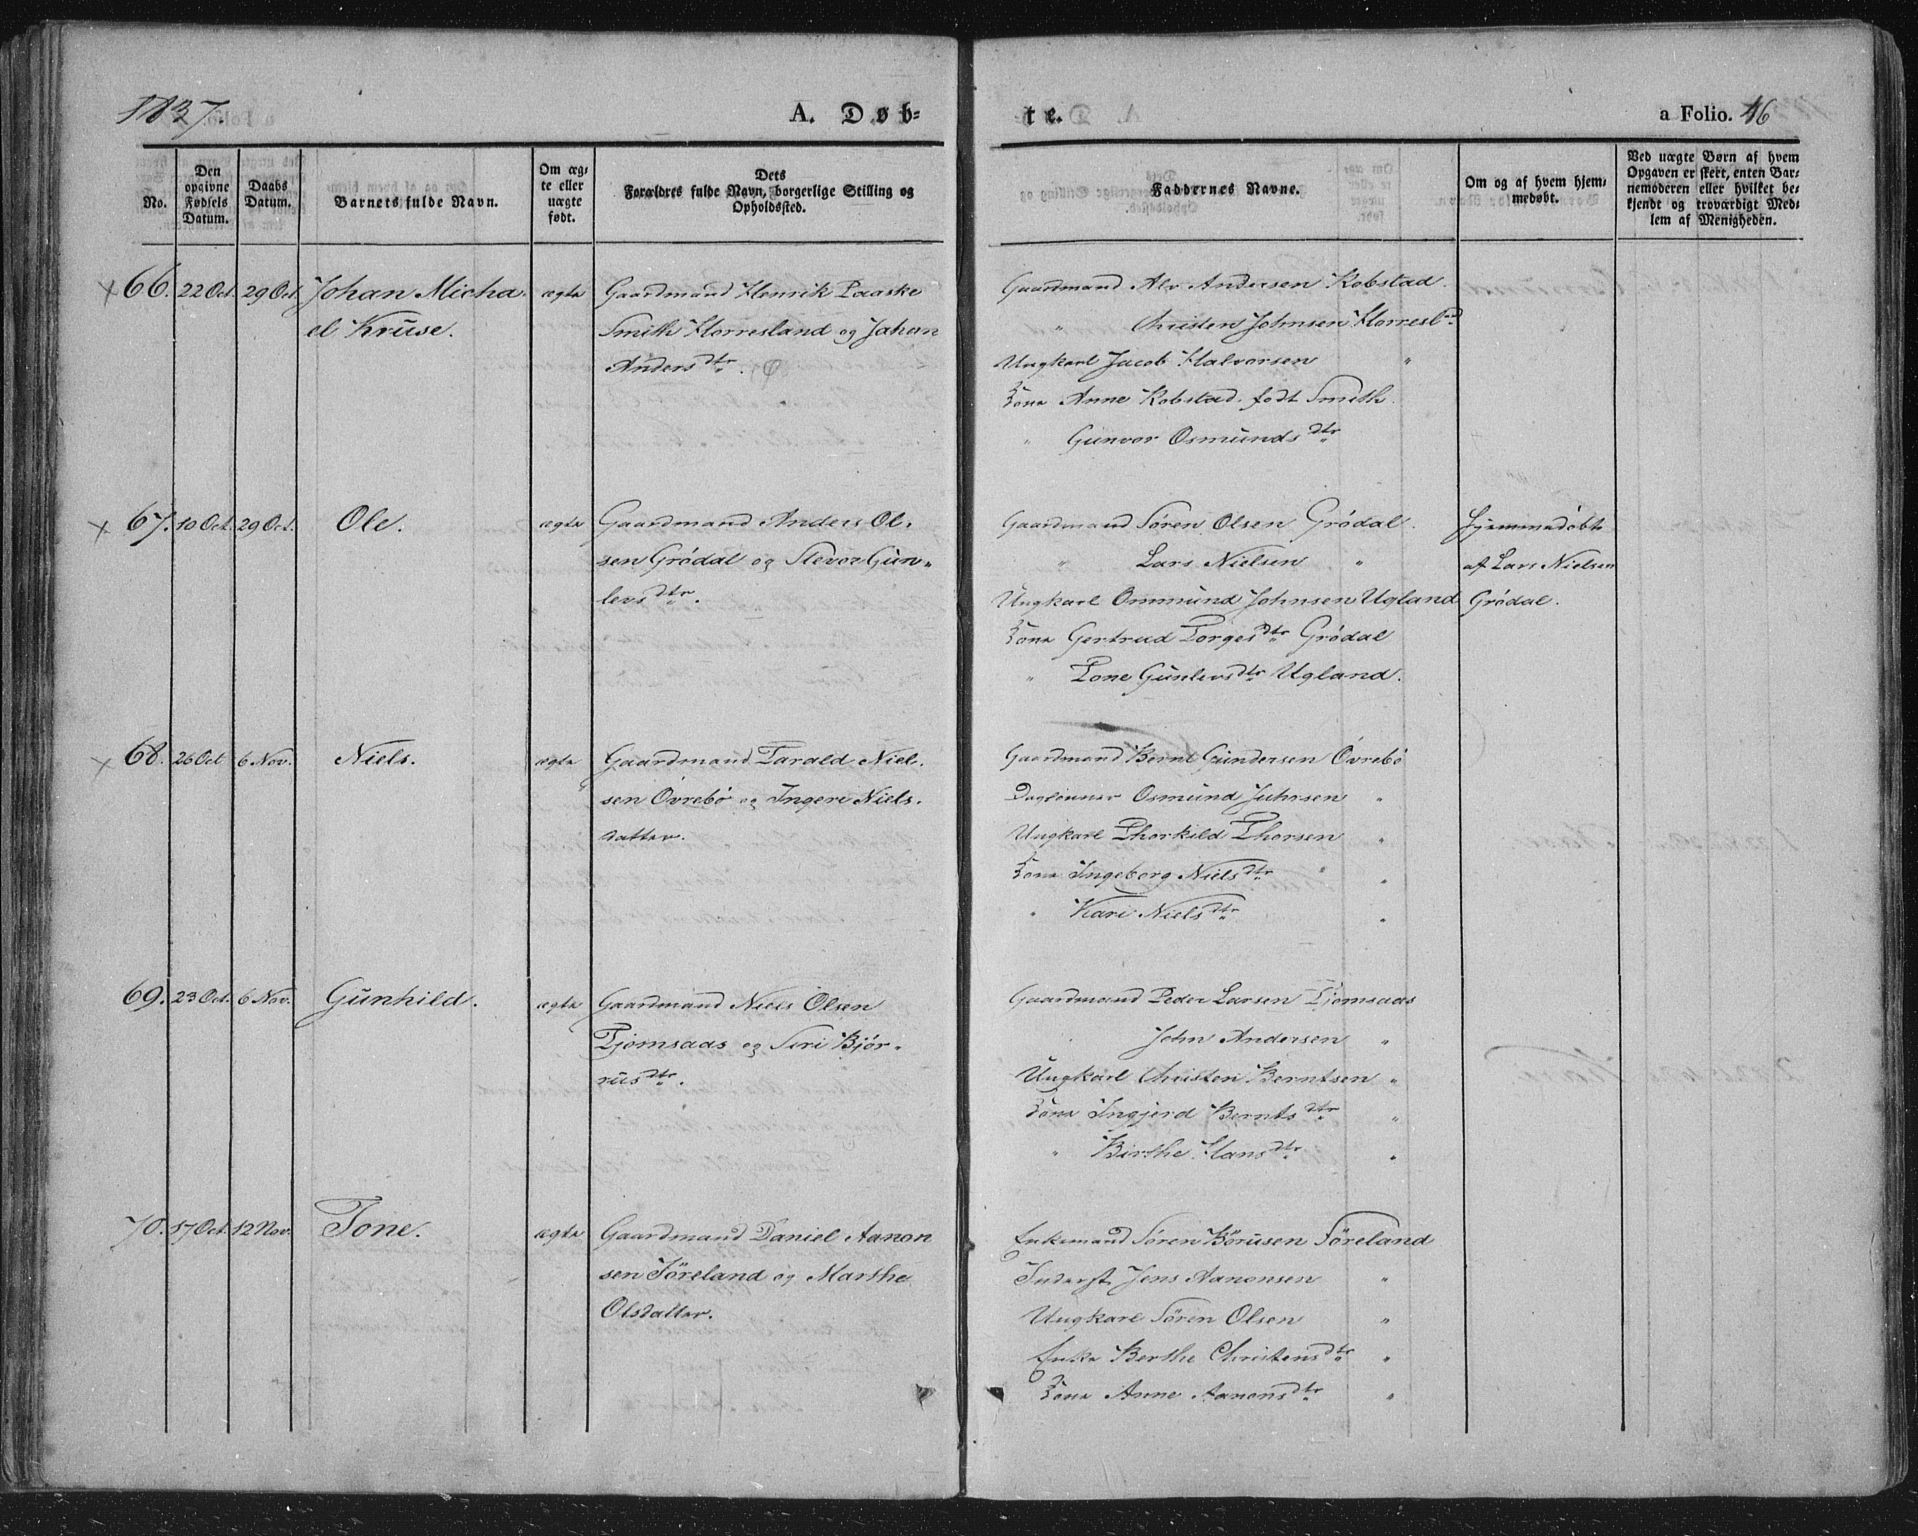 1837.
A. Døb-
te.
a Folio. 46
No.
Den opgivne Fødsels Datum.
Daabs Datum.
Barnets fulde Navn.
Om ægte eller uægte født.
Dets Forældres fulde Navn, borgerlige Stilling og Opholdssted.
Faddernes Navne.
Om og af hvem hjemmedøbt.
Ved uægte Børn af hvem Opgaven er skeet, enten Barnemoderen eller hvilket bekjendt og troværdigt Medlem af Menigheden.
66. 22 Oct. 29 Oct. Johan Micha
el Kruse.
ægte
Gaardmand Henrik Paaske
Smith Horresland og Johan
Anders dtr.
Gaardmand Alv Andersen Kobstad.
" Christen Johnsen Horresld
Ungkarl Jacob Halvorsen "
Kone Anne Kobstad født Smith.
" Gunvor Osmunds dtr
67. 10 Oct. 29 Oct. Ole.
ægte
Gaardmand Anders Ol-
sen Grödal og Siever Gun-
levs dtr.
Gaardmand Sören Olsen Grödal.
" Lars Nielsen "
Ungkarl Ommund Johnsen Ugland
Kone Gertrud Torges dtr Grödal
" Tone Gunlevs dtr Ugland.
Hjemmedöbt
af Lars Nielsen
Grödal.
68. 26 Oct 6 Nov. Niels.
ægte
Gaardmand Tarald Niel-
sen Övrebö og Ingeri Niels-
datter.
Gaardmand Bernt Gundersen Övrebö
Daglönner Osmund Juhrsen "
Ungkarl Thorkild Thorsen "
Kone Ingeborg Niels dtr "
" Kari Niels dtr "
69. 23 Oct. 6 Nov. Gunhild.
ægte
Gaardmand Niels Olsen
Tjomsaas og Siri Björ-
rus dtr.
Gaardmand Peder Larsen Tjomsaas
John Andersen "
Ungkarl Christen Berntsen "
Kone Ingjerd Bernts dtr "
" Birthe Hans dtr "
70. 17 Oct. 12 Nov. Tone.
ægte
Gaardmand Daniel Aanon
sen Föreland og Marthe
Olsdatter.
Enkemand Sören Börusen Föreland
Inderst Jens Aanonsen "
Ungkarl Sören Olsen "
Enke Berthe Christens dtr "
Kone Anne Aanons dtr "